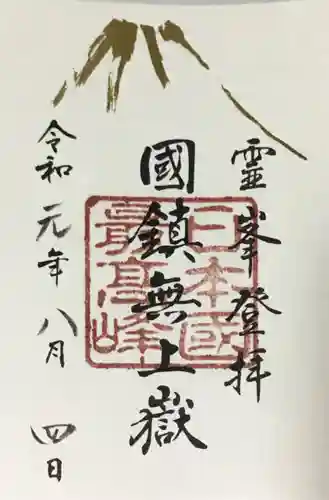 霊峯登拝
國鎮無上嶽
令和元年八月四日
日本國
最高峰